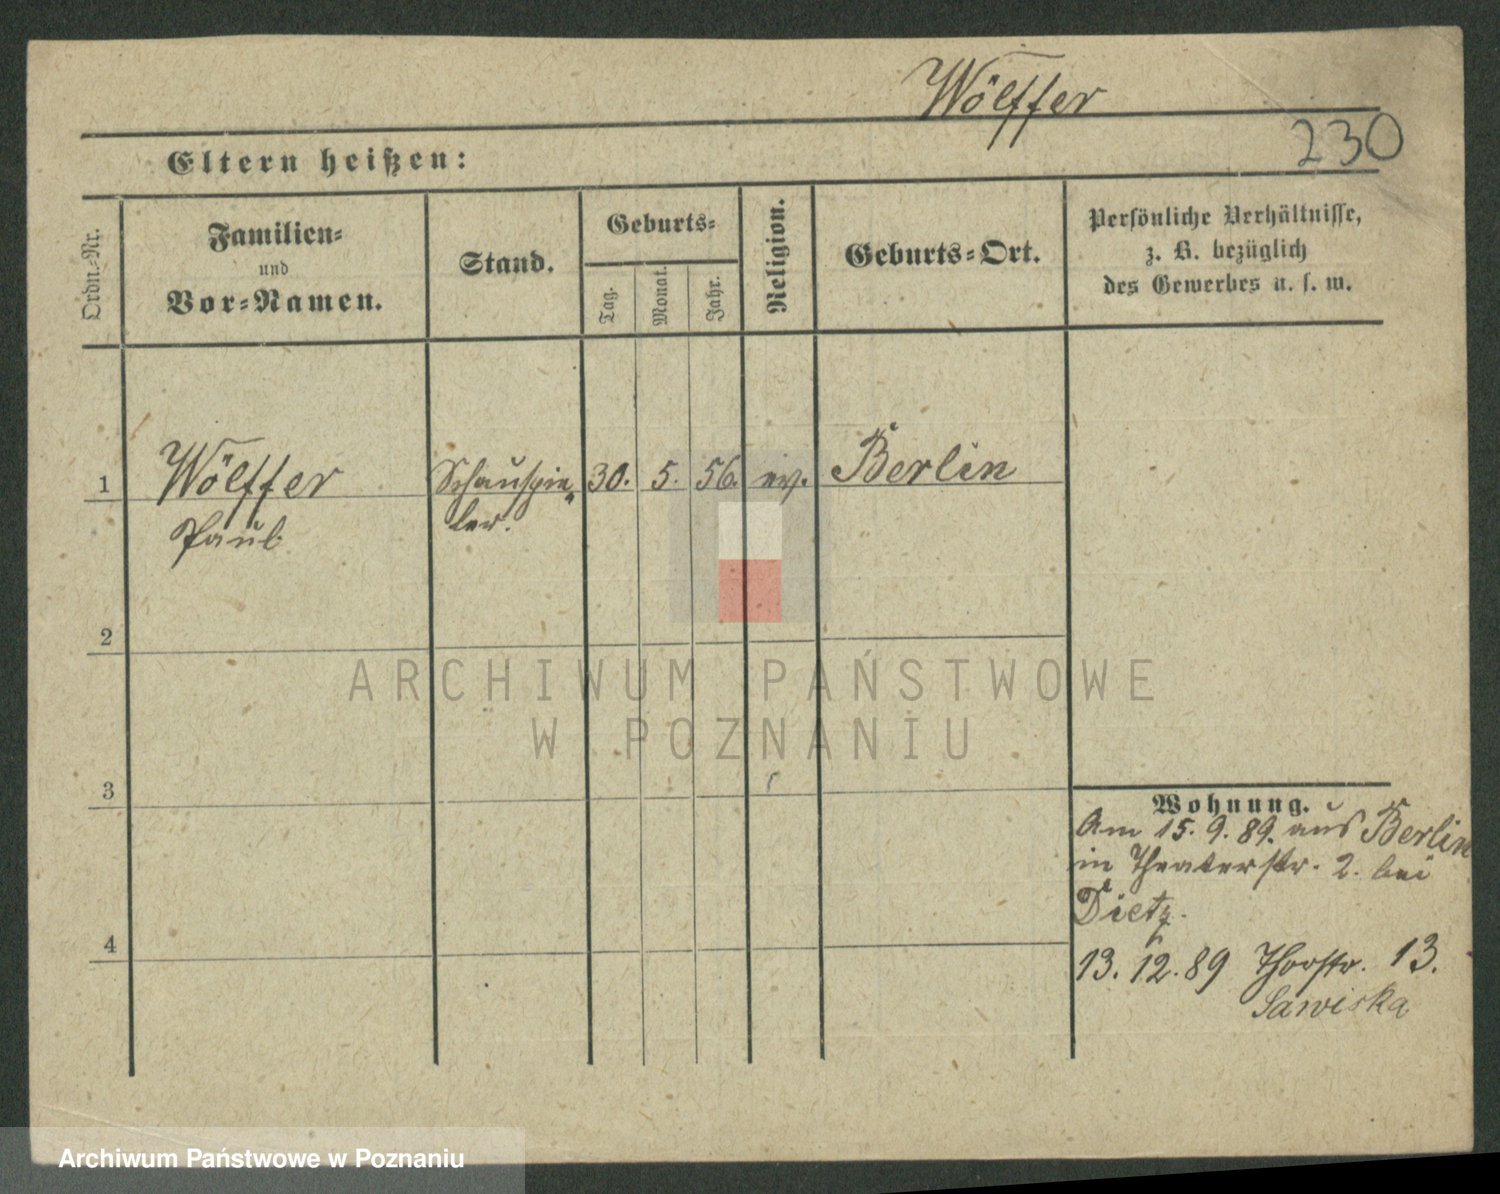 Wölffer
230
Eltern heißen:
Ordn.-Nr.
Familien-
und
Vor-Namen.
Stand.
Geburts-
Tag.
Monat.
Jahr.
Religion.
Geburts-Ort.
Persönliche Verhältnisse,
z. B. bezüglich
des Gewerbes u. s. w.
1
Wölffer
Paul
Schauspie„
ler.
30.
5.
56.
ev.
Berlin
2
3
4
Wohnung.
Am 15. 9. 89. aus Berlin
in Theaterstr. 2. bei
Dietz.
13. 12. 89 Thorstr. 13.
Sawiska
ARCHIWUM PAŃSTWOWE
W POZNANIU
Archiwum Państwowe w Poznaniu